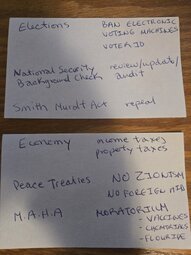 Elections BAN ELECTRONIC
VOTING MACHINES
VOTER ID
National Security review/update/
Background Check audit
Smith Mundt Act repeal
Economy income taxes
property taxes
Peace Treaties NO ZIONISM
NO FOREIGN AID
M.A.H.A MORATORIUM
- VACCINES
- CHEMTRAILS
- FLOURIDE